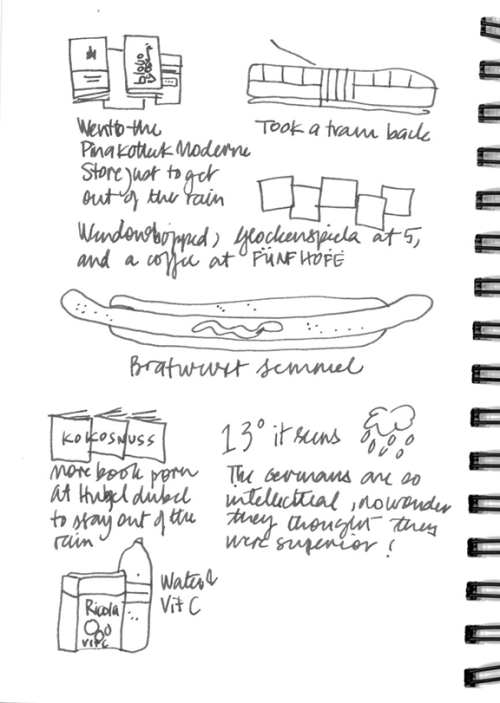 Went to the
Pinakothek Moderne
Store just to get
out of the rain
Took a tram back
Windowshopped, Glockenspiela at 5,
and a coffee at FÜNF HÖFE
Bratwurst semmel
KOKOSNUSS
more book porn
at Hugel dubel
to stay out of the
rain
13° it seems
The Germans are so
intellectual, no wonder
they thought they
were superior!
Ricola
vit C
Water &
Vit C